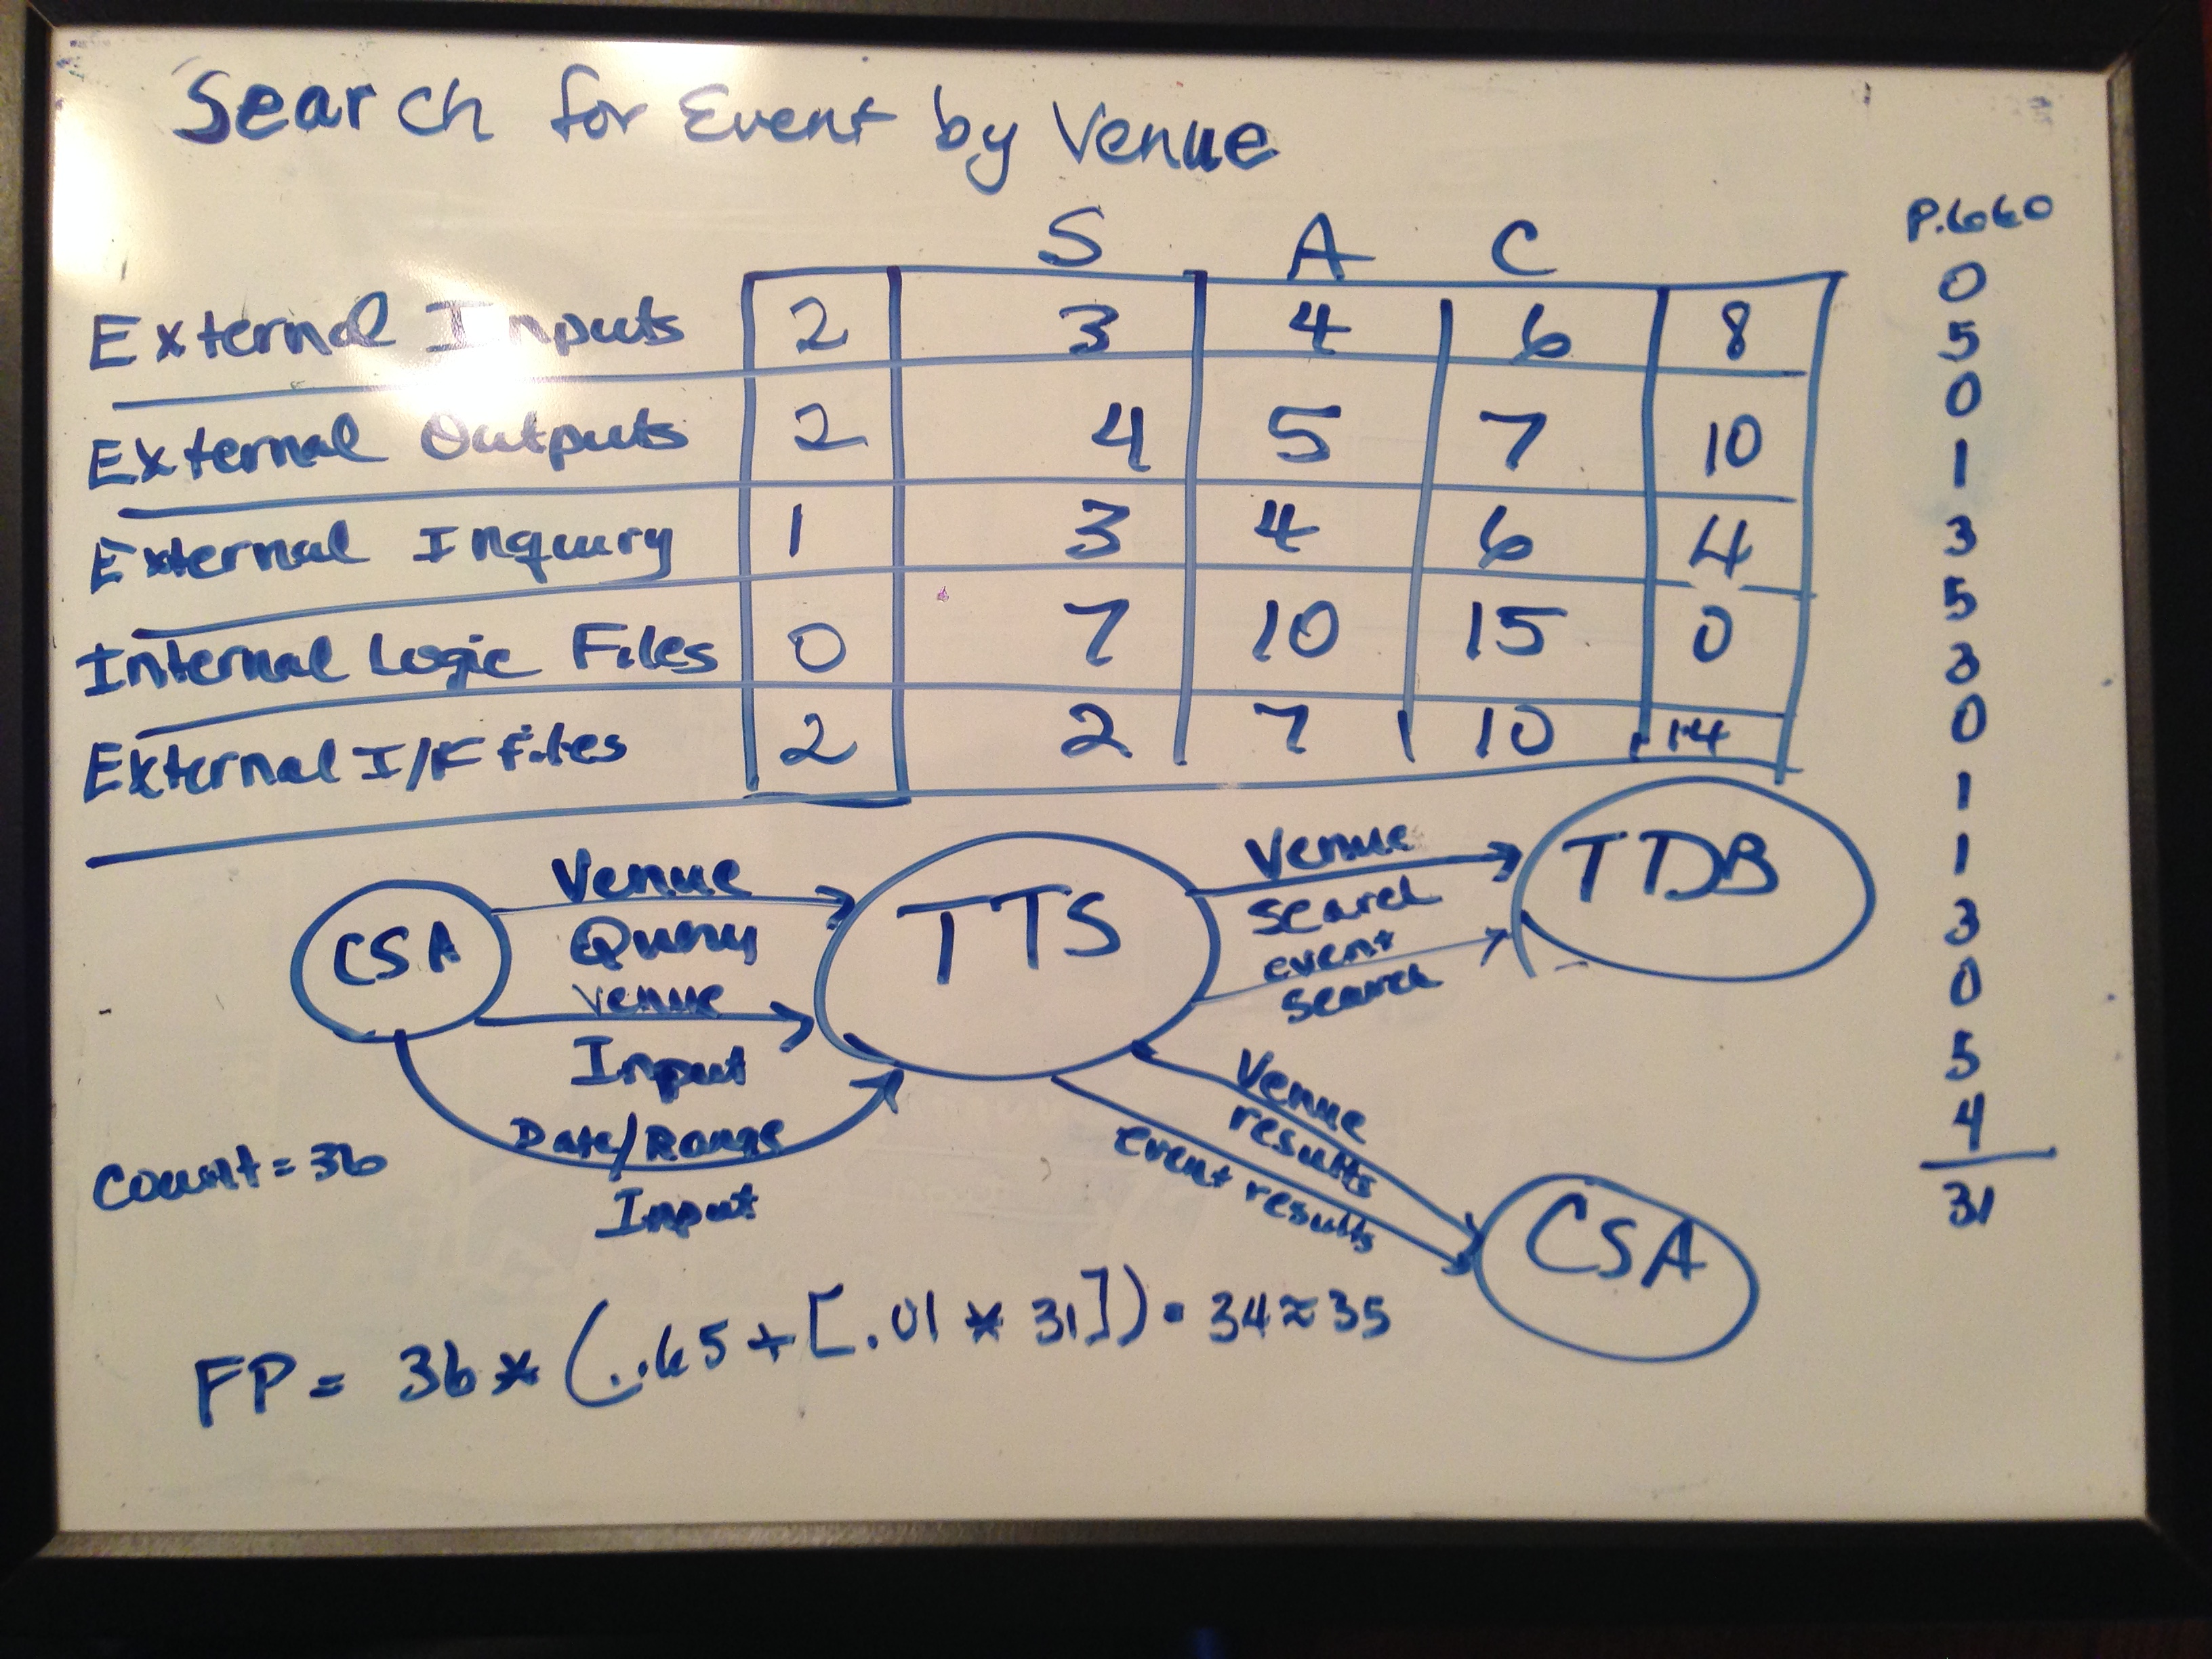 Search for Event by Venue
S A C
External Inputs 2 3 4 6 8
External Outputs 2 4 5 7 10
External Inquiry 1 3 4 6 4
Internal Logic Files 0 7 10 15 0
External I/F Files 2 2 7 10 14
P.660
0
5
0
1
3
5
3
0
1
1
3
0
5
4
31
CSA
Venue
Query
Venue
Input
Date/Range
Input
TTS
Venue
Search
event
search
TDB
Venue
results
event results
CSA
Count = 36
FP = 36 * (.65 + [.01 * 31]) = 34 ≈ 35